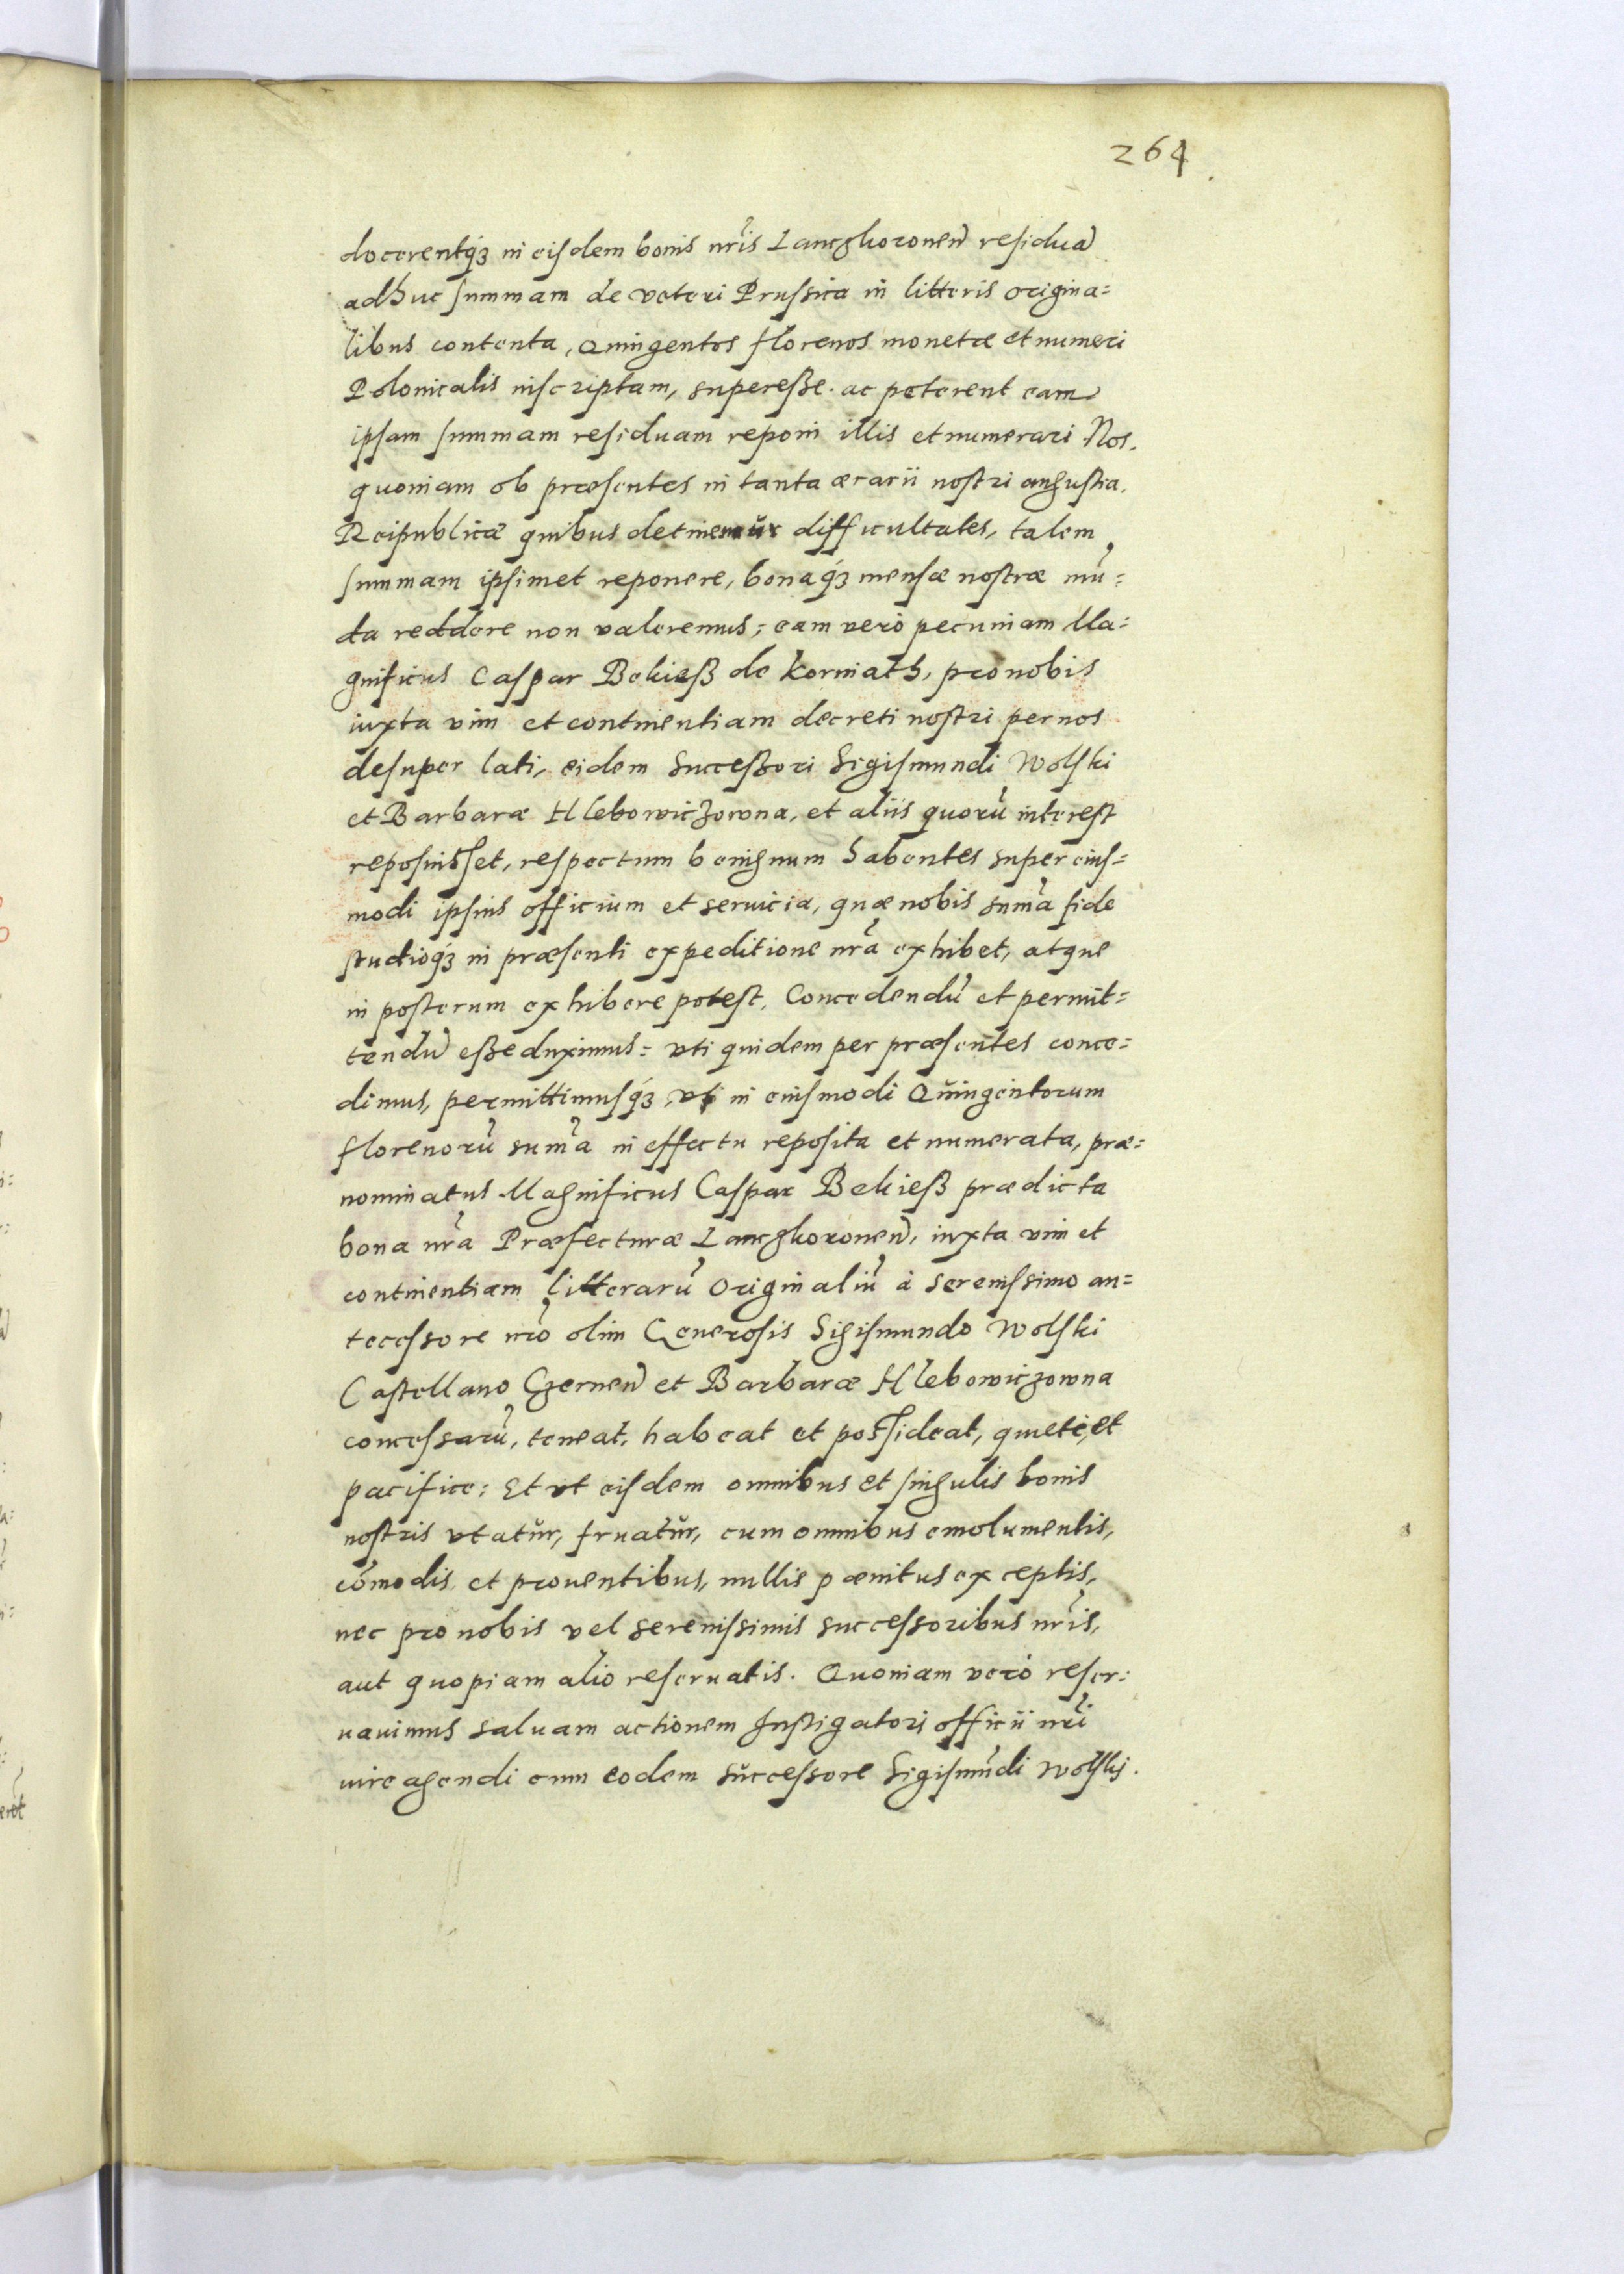 264
docerentq́ꝫ in eisdem bonis nr̃is Lanczkoronen̄ residuā
adhuc summam de veteri Prussica in litteris origina=
libus contenta, Quingentos florenos monetæ et numeri
Polonicalis inscriptam, superesse. ac peterent eam
ipsam summam residuam reponi illis et numerari Nos.
quoniam ob præsentes in tanta ærarii nostri angustia,
Reipublicæ quibus detinemŭr difficultates, talem
summam ipsimet reponere, bonaq́ꝫ mensæ nostræ inū=
da reddere non valeremus; eam verò pecuniam Ma=
gnificus Caspar Bekieß de Korniath, pro nobis
iuxta vim et continentiam decreti nostri per nos
desuper lati, eidem Successori Sigismundi Wolski
et Barbaræ Hlebowiczowna, et aliis quorū interest
reposuisset, respectum benignum habentes super eius=
modi ipsius officium et seruicia, quæ nobis sum̄a fide
studioq́ꝫ in præsenti expeditione nr̃a exhibet, atque
in posterum exhibere potest, Concedendū et permit=
tendū esse duximus= vti quidem per præsentes conce=
dimus, permittimusq́ꝫ, vt in eiusmodi Qŭingentorum
florenorū sum̄a in effectu reposita et numerata, præ=
nominatus Magnificus Caspar Bekieß prædicta
bona nr̃a Præfecturæ Lanczkoronen̄, iuxta vim et
continentiam litterarū Originaliū à serenissimo an=
tecessore nr̃o olim Generosis Sigismundo Wolski
Castellano Czernen̄ et Barbaræ Hlebowiczowna
concessarū, teneat, habeat et possideat, quietè, et
pacifice: Et vt eisdem omnibus et singulis bonis
nostris vtatŭr, fruatŭr, cum omnibus emolumentis,
com̄odis et prouentibus, nullis pænitus exceptis,
nec pro nobis vel serenissimis successoribus nr̃is,
aut quopiam alio reseruatis. Quoniam verò reser:
uauimus saluam actionem Instigatori officii nr̃i
iure agendi cum eodem sŭccessore Sigismūdi Wolskj.